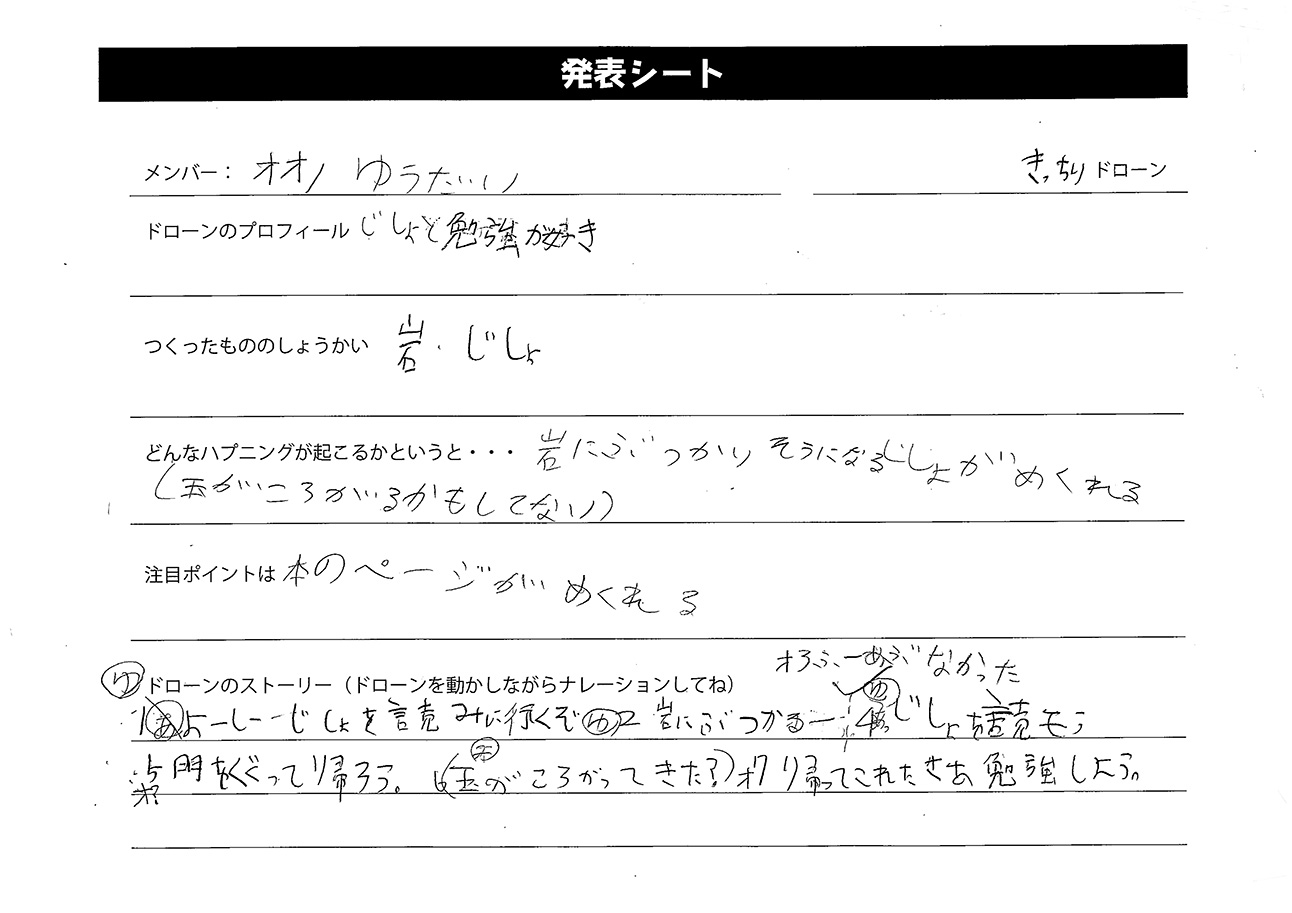 発表シート
メンバー： オオノ ゆうだい
きっちりドローン
ドローンのプロフィール じしょと勉強が好き
つくったもののしょうかい 岩・じしょ
どんなハプニングが起こるかというと・・・ 岩にぶつかりそうになるじしょがめくれる
(玉がころがるかもしてない)
注目ポイントは本のページがめくれる
オろふーあぶなかった
ゆ ドローンのストーリー（ドローンを動かしながらナレーションしてね）
1 あ よーしーじしょを読みに行くぞ ゆ 2 岩にぶつかるー ゆ じしょを読もう
門をくぐって帰ろう。 (玉がころがってきた?) 帰ってこれたさあ勉強しよう。